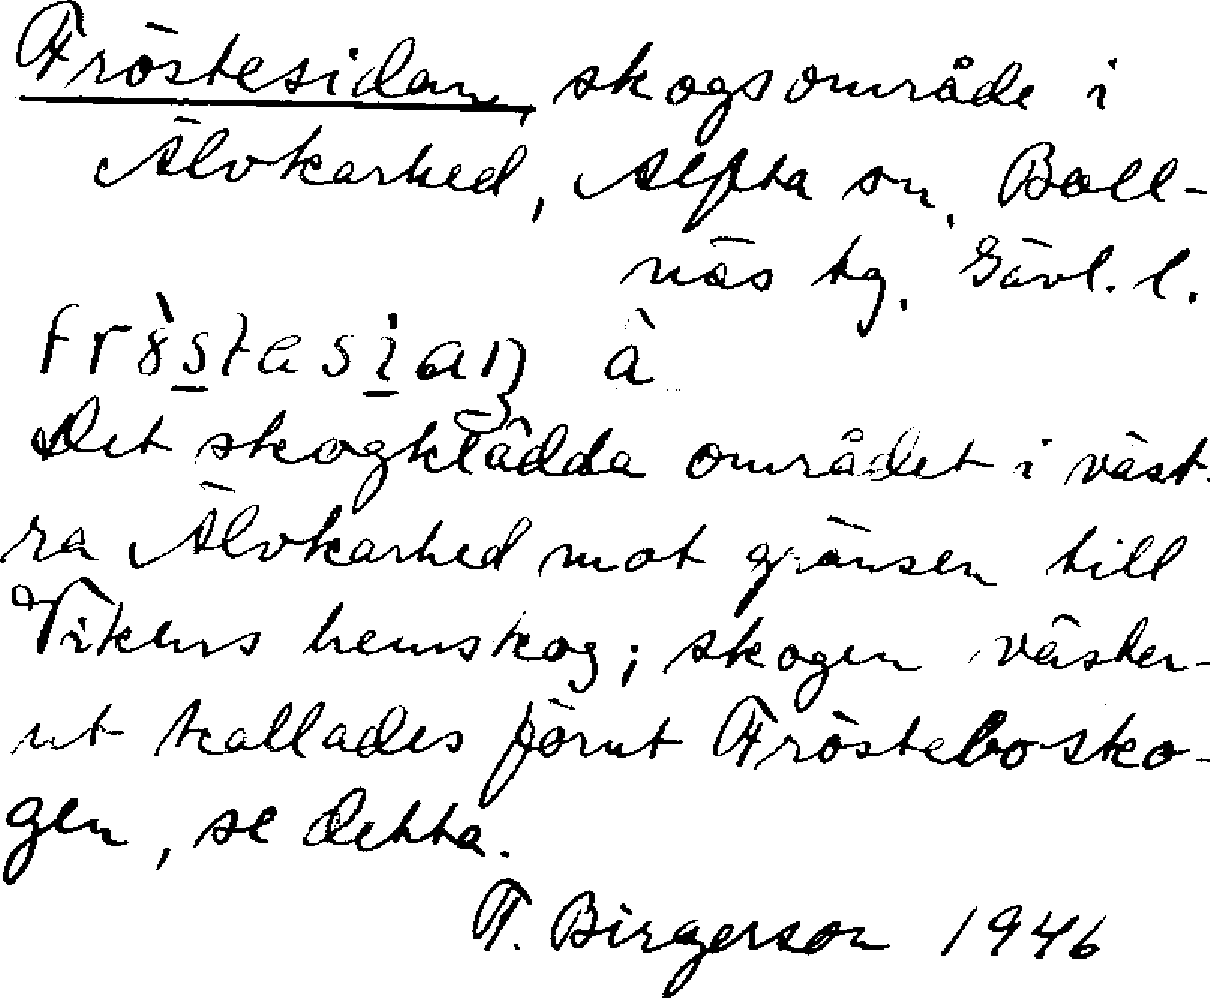 Fröstesidan, skogsområde i
Älvkarhed, Alfta sn, Boll-
näs tg. Gävl. l.
Det skogklädda området i väst-
ra Älvkarhed mot gränsen till
Vikens hemskog; skogen väster-
ut kallades förut Fröstebosko-
gen, se detta.
F. Birgerson 1946